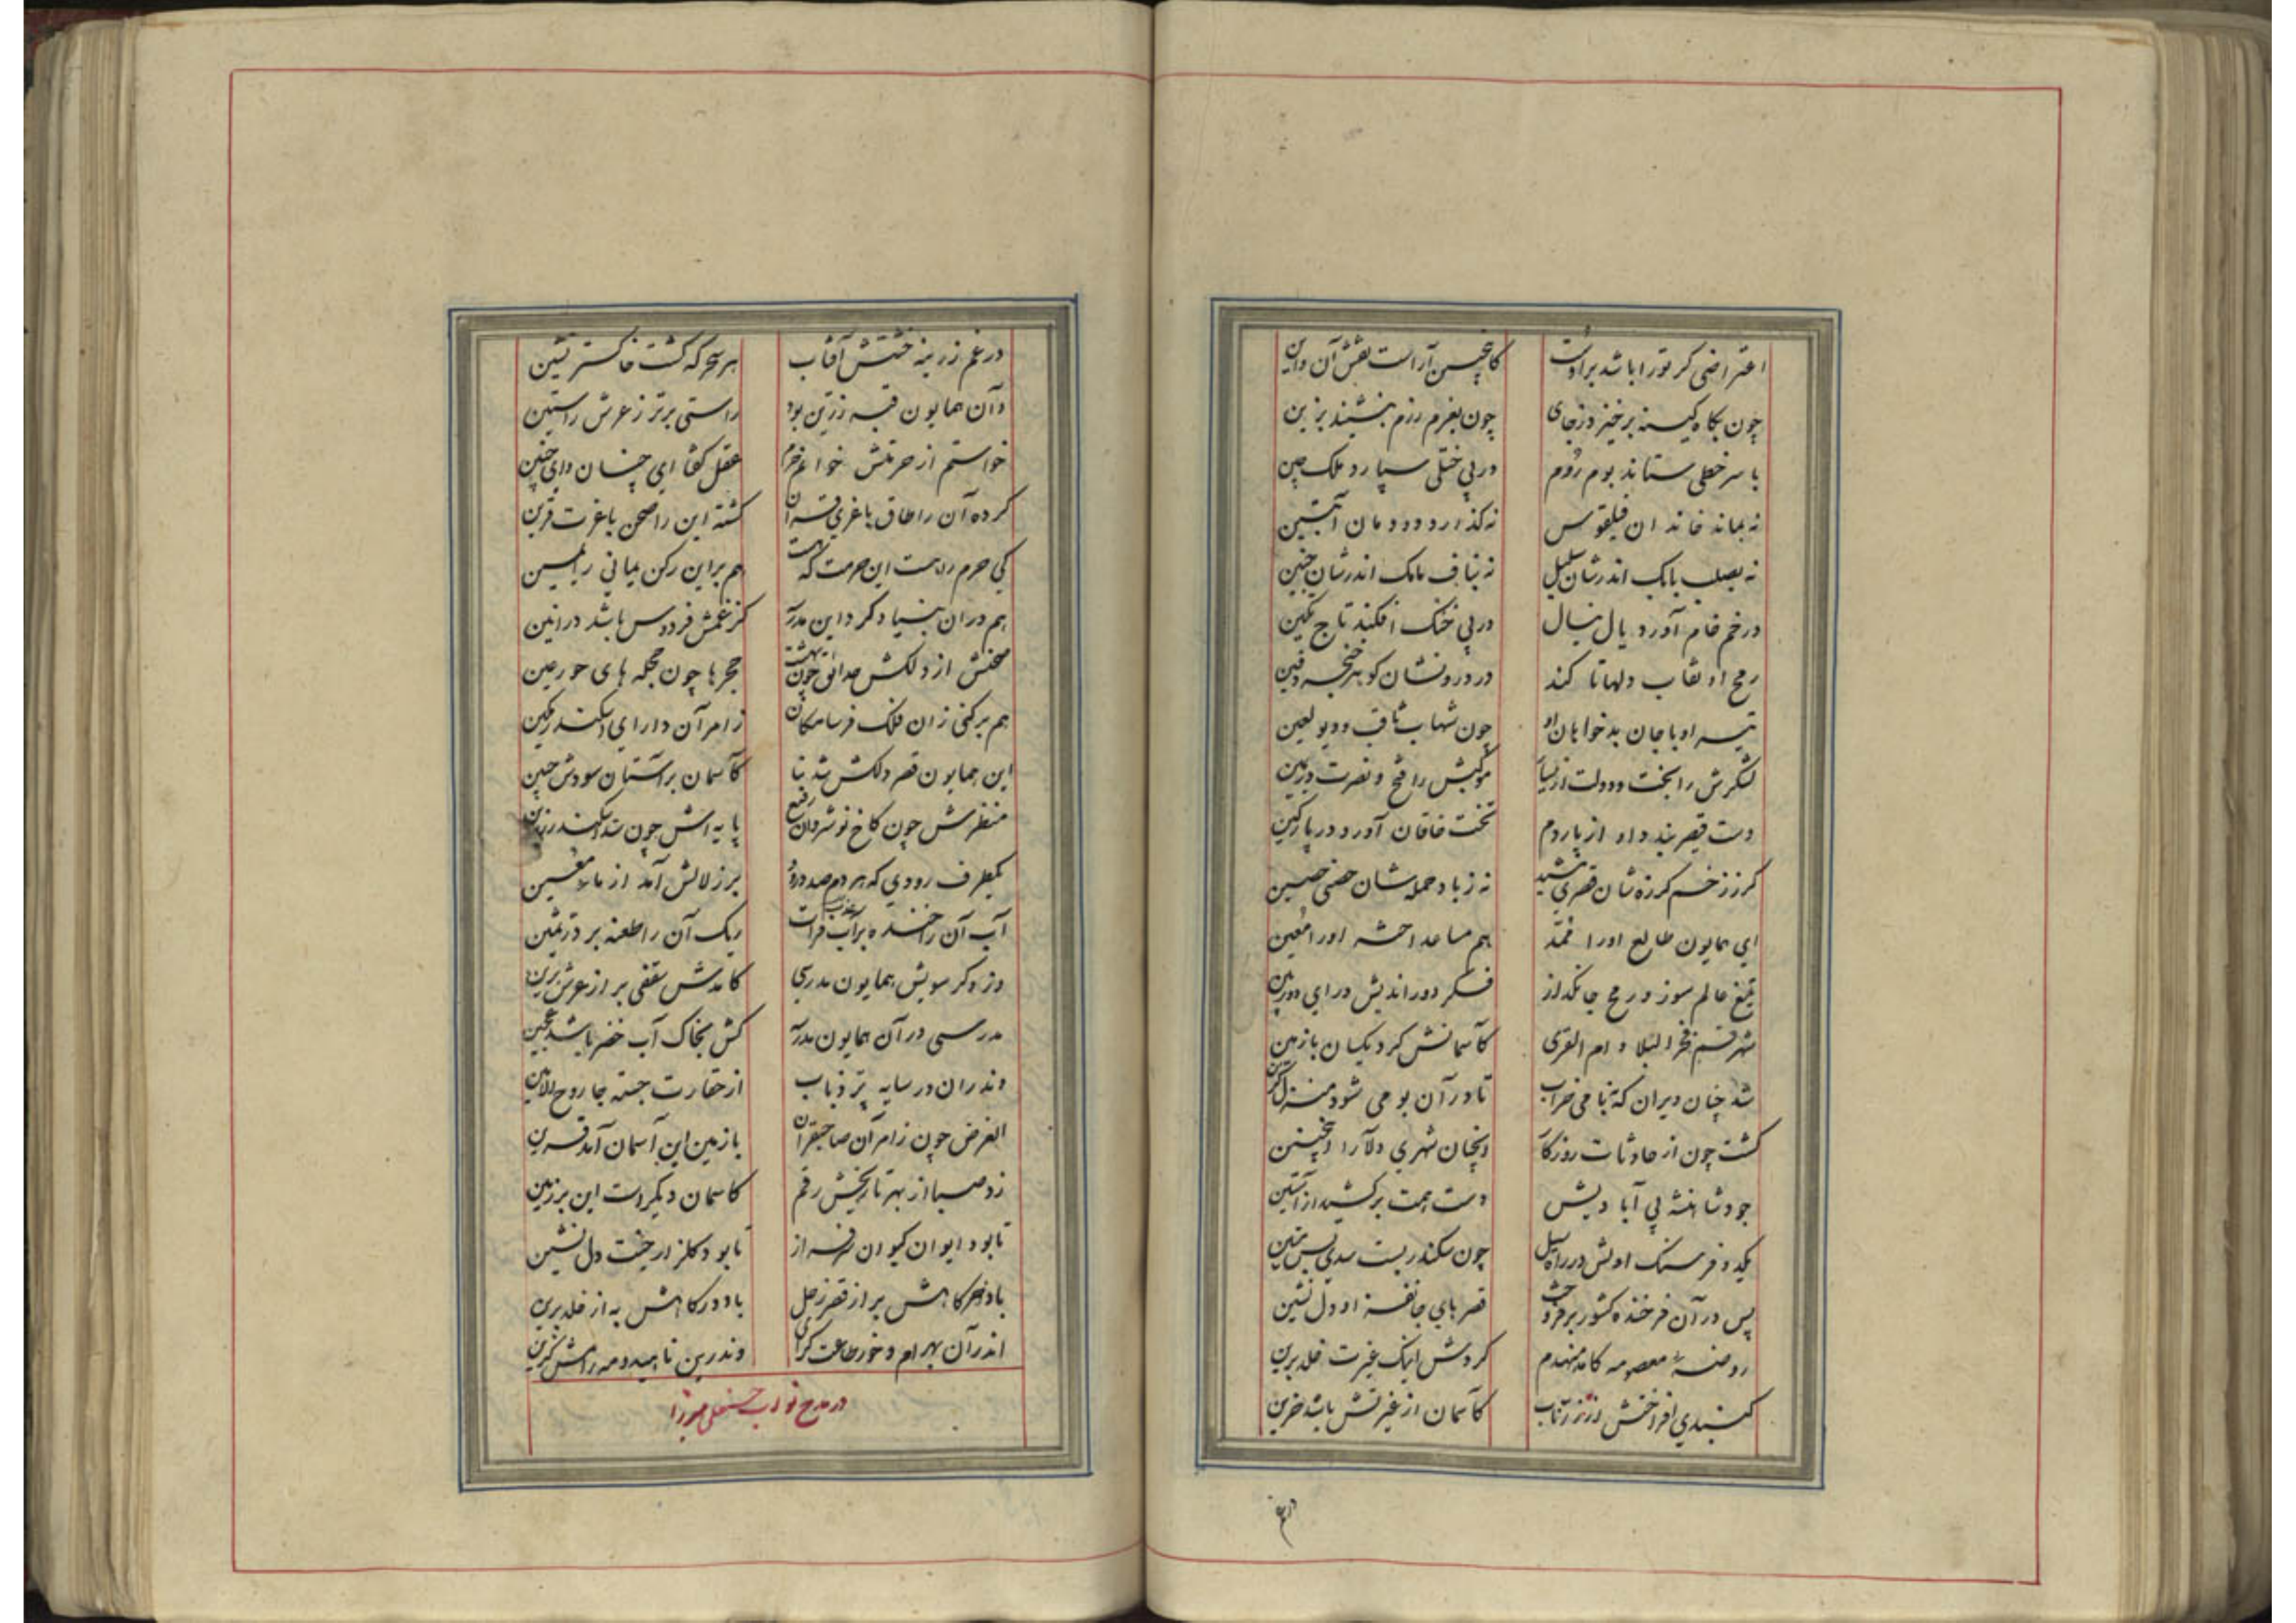 اعتراضی گر تو را باشد بر او کاین چسن آراست نقش آن و این
چون بگاه کینه برخیزد ز جای چون بعزم رزم بنشیند بزین
با سر خطی ستاند بوم روم در پی ختلی سپارد ملک چین
نه بماند خاندان فیلقوس نه گذارد دودمان آتبین
نه بصلب بابک اندرشان سلیل نه بناف مامک اندرشان جنین
در خم خام آورد یال ینال در پی خنگ افکند تاج تکین
رمح او نقاب دلها تا کند در درونشان گوهر خنجر دفین
تیر او با جان بدخواهان او چون شهاب ثاقب و دیو لعین
لشکرش را بخت و دولت از یسار موکبش را فتح و نصرت در یمین
دست قیصر بندد او از پاردم تخت خاقان آورد در پارگین
گر ز زخم گرزه شان قصری مشید نه ز باد حمله شان حصنی حصین
ای همایون طالع او را هم مساعد اختر او را معین
تیغ عالم سوز و رمح جانگداز فکر دوراندیش و رای دوربین
شهر قم فخر البلاد و ام القری کآسمانش کرد یکسان با زمین
شد چنان ویران که بنا می خراب تا در آن بومی شود منزل گزین
گشت چون از حادثات روزگار آنچنان شهری دلآرا اینچنین
جود شاهنشه پی آبادیش دست همت برکشید از آستین
یکدو فرسنگ اولش در راه سیل چون سکندر بست سدی بس متین
پس در آن فرخنده کشور برفراخت قصرهای جانفزا و دل نشین
روضهٔ معصومه کامد منهدم کردش اینک غیرت خلد برین
گنبدی افراختش از زر ناب کآسمان از غیرتش باشد حزین
در غم زرینه خشتش آفتاب هر سحر که گشت خاکستر نشین
وآن همایون قبه زرین بود راستی برتر ز عرش راستین
خواستم از حرمتش خوانم حرم عقل گفتا ای چنان و ای چنین
کرده آن را طاق با عزی قران گشته این را صحن با عزت قرین
کی حرم را هست این حرمت که هست هم بر این رکن یمانی را یمین
هم در آن بنیاد کرد این مدرسه کز غمش فردوس باشد در انین
صحنش از دلکش حدائق چون بهشت حجرها چون حجله های حور عین
هم برکنی زان فلک فرسا مکان ز امر آن دارای اسکندر نگین
این همایون قصر دلکش شد بنا کآسمان بر آستان سودش جبین
منظرش چون کاخ نوشروان رفیع پایه اش چون سد اسکندر رزین
یکطرف رودی که هر دم صد درود بر زلالش آمد از ماء معین
آب آن را خنده بر آب فرات ریگ آن را طعنه بر در ثمین
وز دگر سویش همایون مدرسی کامدش سقفی بر از عرش برین
مدرسی در آن همایون مدرسه کش بخاک آب خضر باشد عجین
وندران در سایه پر ذباب از حقارت جسته جا روح الامین
الغرض چون ز امر آن صاحبقران با زمین این آسمان آمد قرین
زد صبا از بهر تاریخش رقم کآسمان دیگر است این بر زمین
تا بود ایوان کیوان سرفراز تا بود گلزار جنت دل نشین
باد خرگاهش بر از قصر زحل باد درگاهش به از خلد برین
اندر آن بهرام و خور طاعت گرای وندرین ناهید و مه رامش گزین
در مدح نواب حسنعلی میرزا